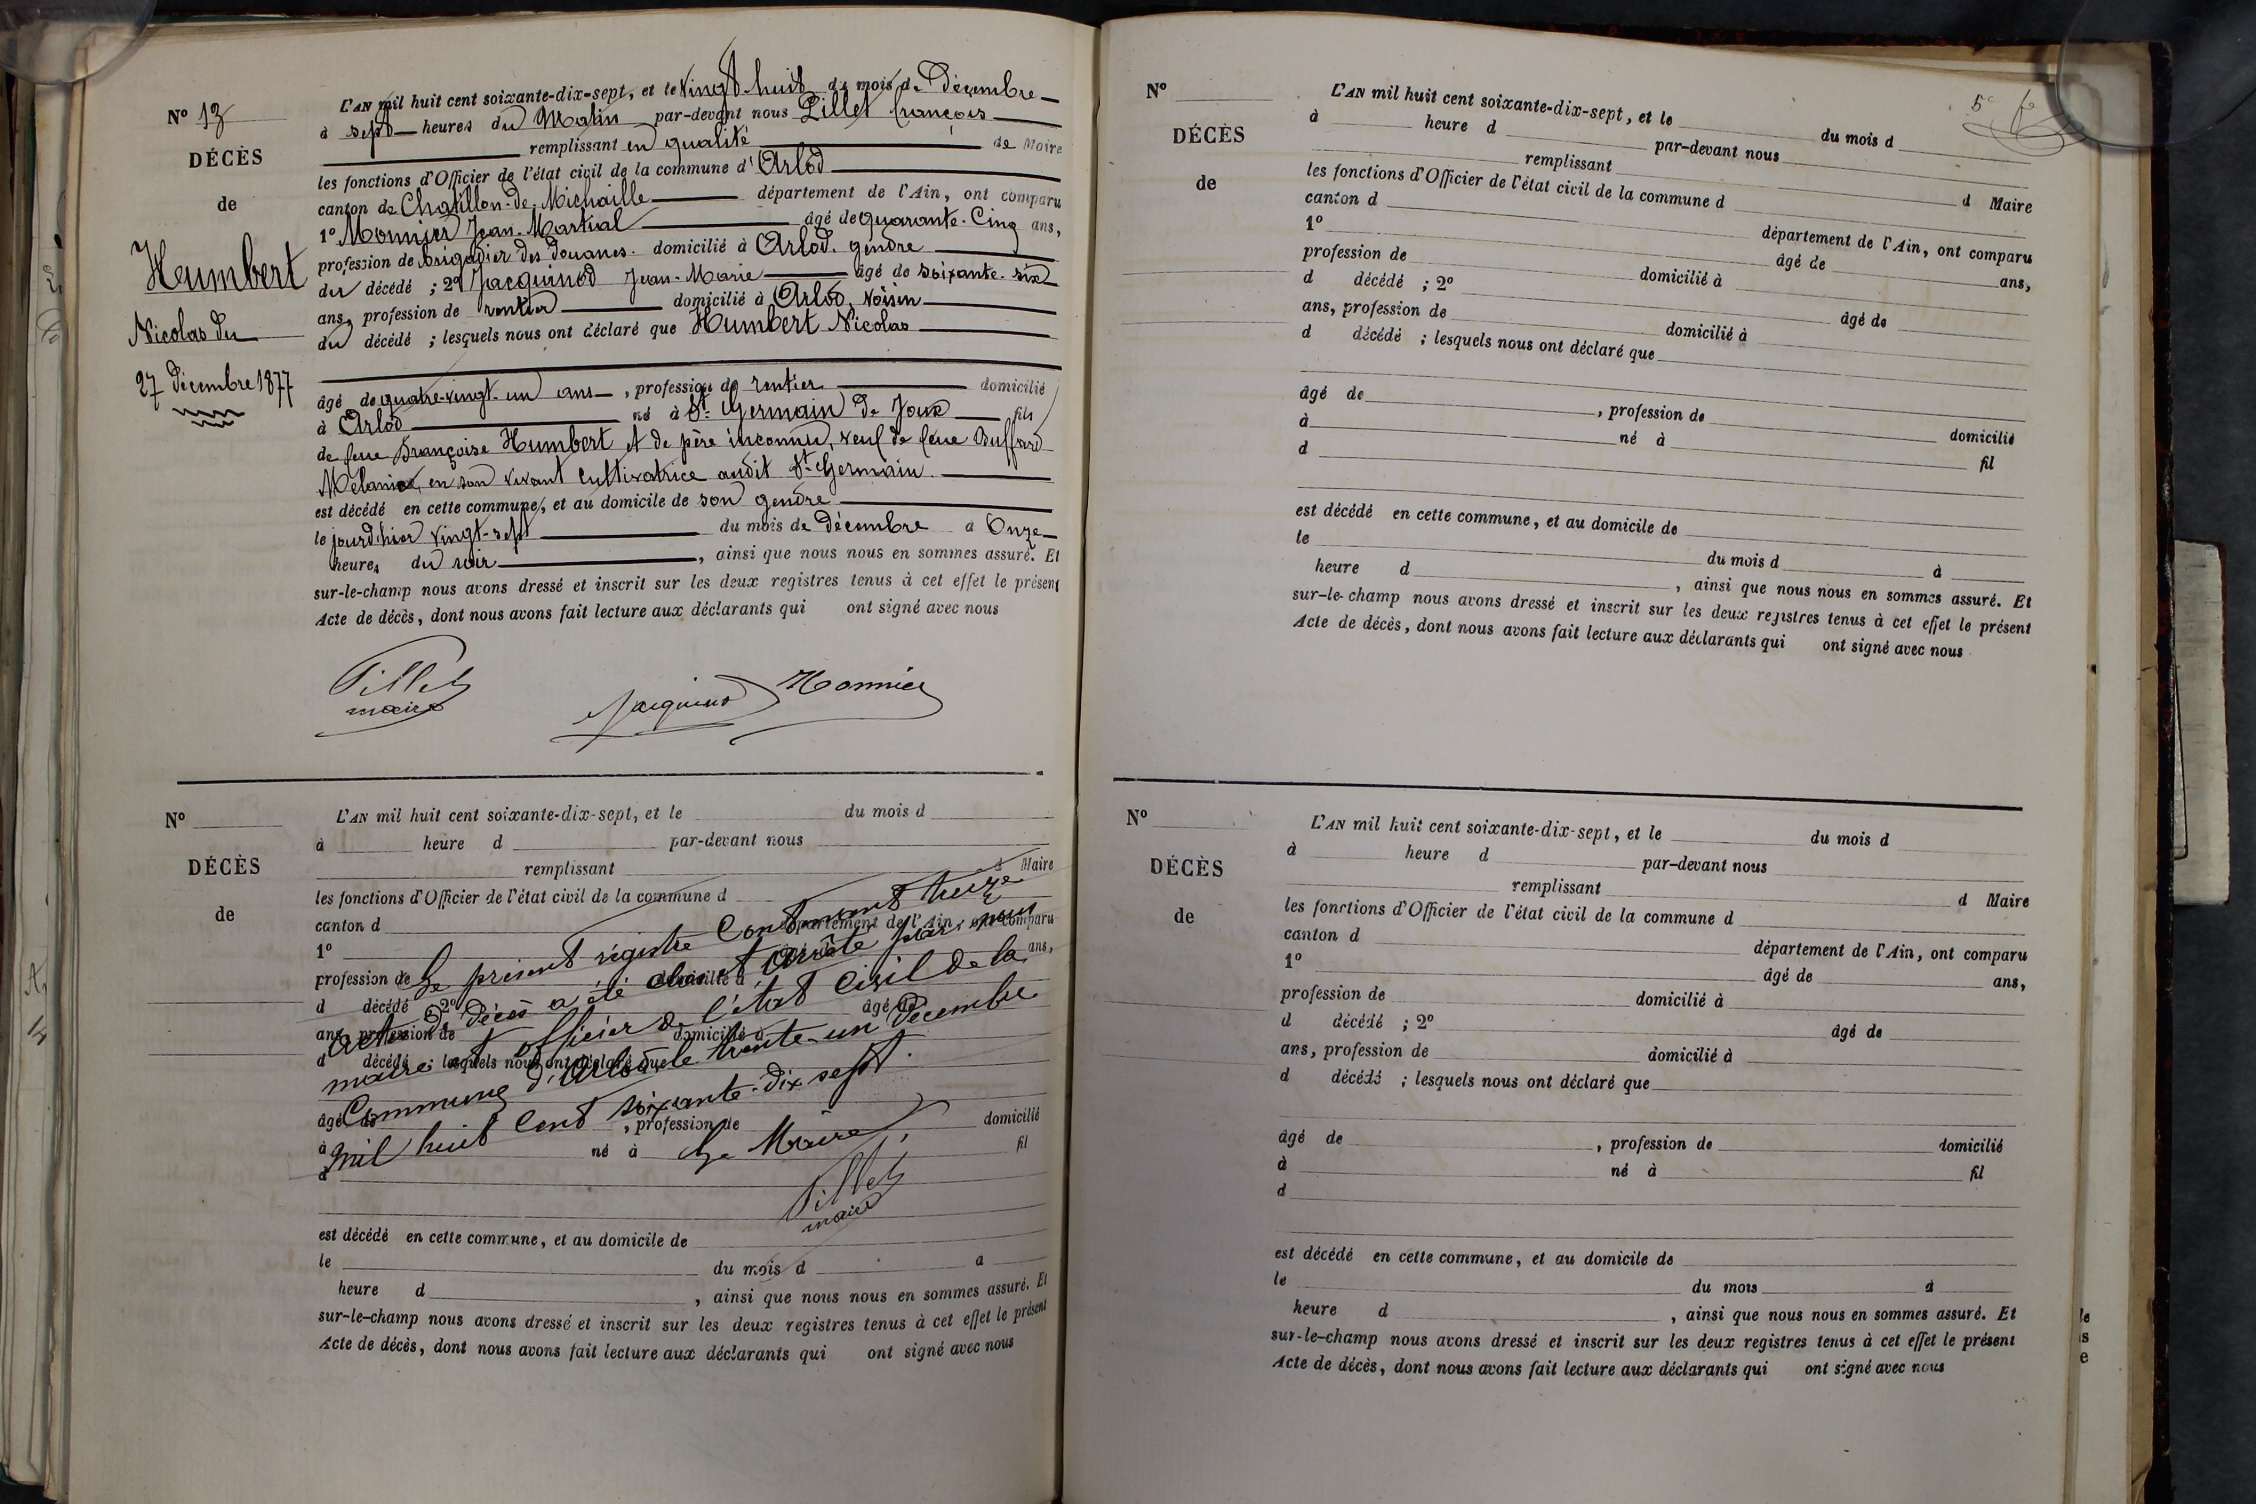 Nº 13
DÉCÈS
de
Humbert
Nicolas du
27 Décembre 1877
L'AN mil huit cent soixante-dix-sept, et le Vingt-huit du mois de Décembre
à sept heures du Matin par-devant nous Pillet françois
remplissant en qualité de Maire
les fonctions d'Officier de l'état civil de la commune d'Arlod
canton de Chatillon-de-Michaille département de l'Ain, ont comparu
1º Monnier Jean-Martial âgé de quarante-Cinq ans,
profession de brigadier des douanes domicilié à Arlod. gendre
du décédé ; 2º Jacquinod Jean-Marie âgé de soixante-six
ans, profession de rentier domicilié à Arlod, voisin
du décédé ; lesquels nous ont déclaré que Humbert Nicolas
âgé de quatre-vingt-un ans, profession de rentier domicilié
à Arlod né à St Germain de Joux fils
de feue Françoise Humbert et de père inconnu, veuf de feue Buffard
Mélanie, en son vivant cultivatrice audit St Germain
est décédé en cette commune, et au domicile de son gendre
le jourd'hier vingt-sept du mois de décembre à Onze
heures du soir, ainsi que nous nous en sommes assuré. Et
sur-le-champ nous avons dressé et inscrit sur les deux registres tenus à cet effet le présent
Acte de décès, dont nous avons fait lecture aux déclarants qui ont signé avec nous
Pillet
maire
Jacquinod
Monnier
Nº
DÉCÈS
de
L'AN mil huit cent soixante-dix-sept, et le du mois d
à heure d par-devant nous
remplissant d Maire
les fonctions d'Officier de l'état civil de la commune d
canton d département de l'Ain, ont comparu
1º ans,
profession de domicilié à
d décédé ; 2º âgé de
ans, profession de domicilié à
d décédé ; lesquels nous ont déclaré que
âgé de , profession de domicilié
à né à fil
d
Le présent régistre Contenant treize
Actes de décès a été clos et arrêté par nous
maire et officier de l'état Civil de la
Commune d'Arlod le trente-un Décembre
mil huit Cent soixante-dix sept.
Le Maire
Pillet
maire
est décédé en cette commune, et au domicile de
le du mois d à
heure d , ainsi que nous nous en sommes assuré. Et
sur-le-champ nous avons dressé et inscrit sur les deux registres tenus à cet effet le présent
Acte de décès, dont nous avons fait lecture aux déclarants qui ont signé avec nous
5e fo
Nº
DÉCÈS
de
L'AN mil huit cent soixante-dix-sept, et le du mois d
à heure d par-devant nous
remplissant d Maire
les fonctions d'Officier de l'état civil de la commune d
canton d département de l'Ain, ont comparu
1º âgé de ans,
profession de domicilié à
d décédé ; 2º âgé de
ans, profession de domicilié à
d décédé ; lesquels nous ont déclaré que
âgé de , profession de domicilié
à né à fil
d
est décédé en cette commune, et au domicile de
le du mois d à
heure d , ainsi que nous nous en sommes assuré. Et
sur-le-champ nous avons dressé et inscrit sur les deux registres tenus à cet effet le présent
Acte de décès, dont nous avons fait lecture aux déclarants qui ont signé avec nous
Nº
DÉCÈS
de
L'AN mil huit cent soixante-dix-sept, et le du mois d
à heure d par-devant nous
remplissant d Maire
les fonctions d'Officier de l'état civil de la commune d
canton d département de l'Ain, ont comparu
1º âgé de ans,
profession de domicilié à
d décédé ; 2º âgé de
ans, profession de domicilié à
d décédé ; lesquels nous ont déclaré que
âgé de , profession de domicilié
à né à fil
d
est décédé en cette commune, et au domicile de
le du mois à
heure d , ainsi que nous nous en sommes assuré. Et
sur-le-champ nous avons dressé et inscrit sur les deux registres tenus à cet effet le présent
Acte de décès, dont nous avons fait lecture aux déclarants qui ont signé avec nous